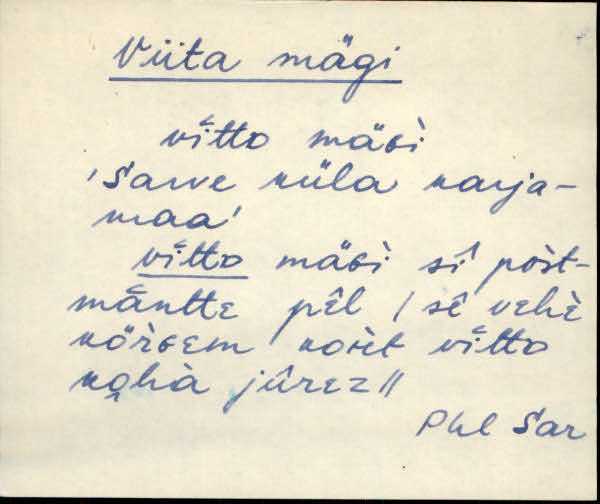 Viita mägi
vĭtto mäɢì
'Sarve küla karja-
maa'
vĭtto mäɢì sî pòst-
mäntte pêl / sê vehè
kõrɢem koìt vĭtto
kohà jûrez //
Phl Sar